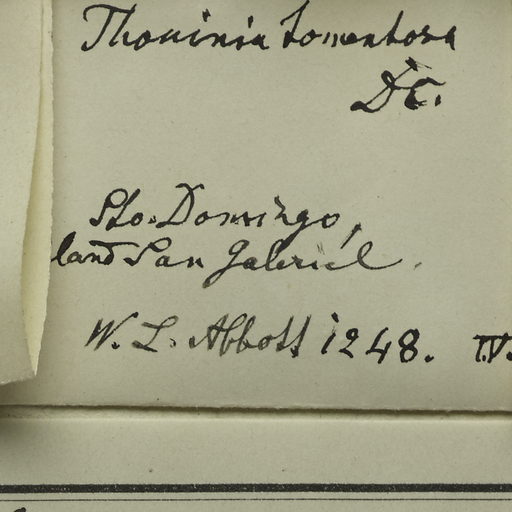 Thouinia tomentosa
DC.
Sto. Domingo,
land San Gabriel.
W. L. Abbott 1248. IV.